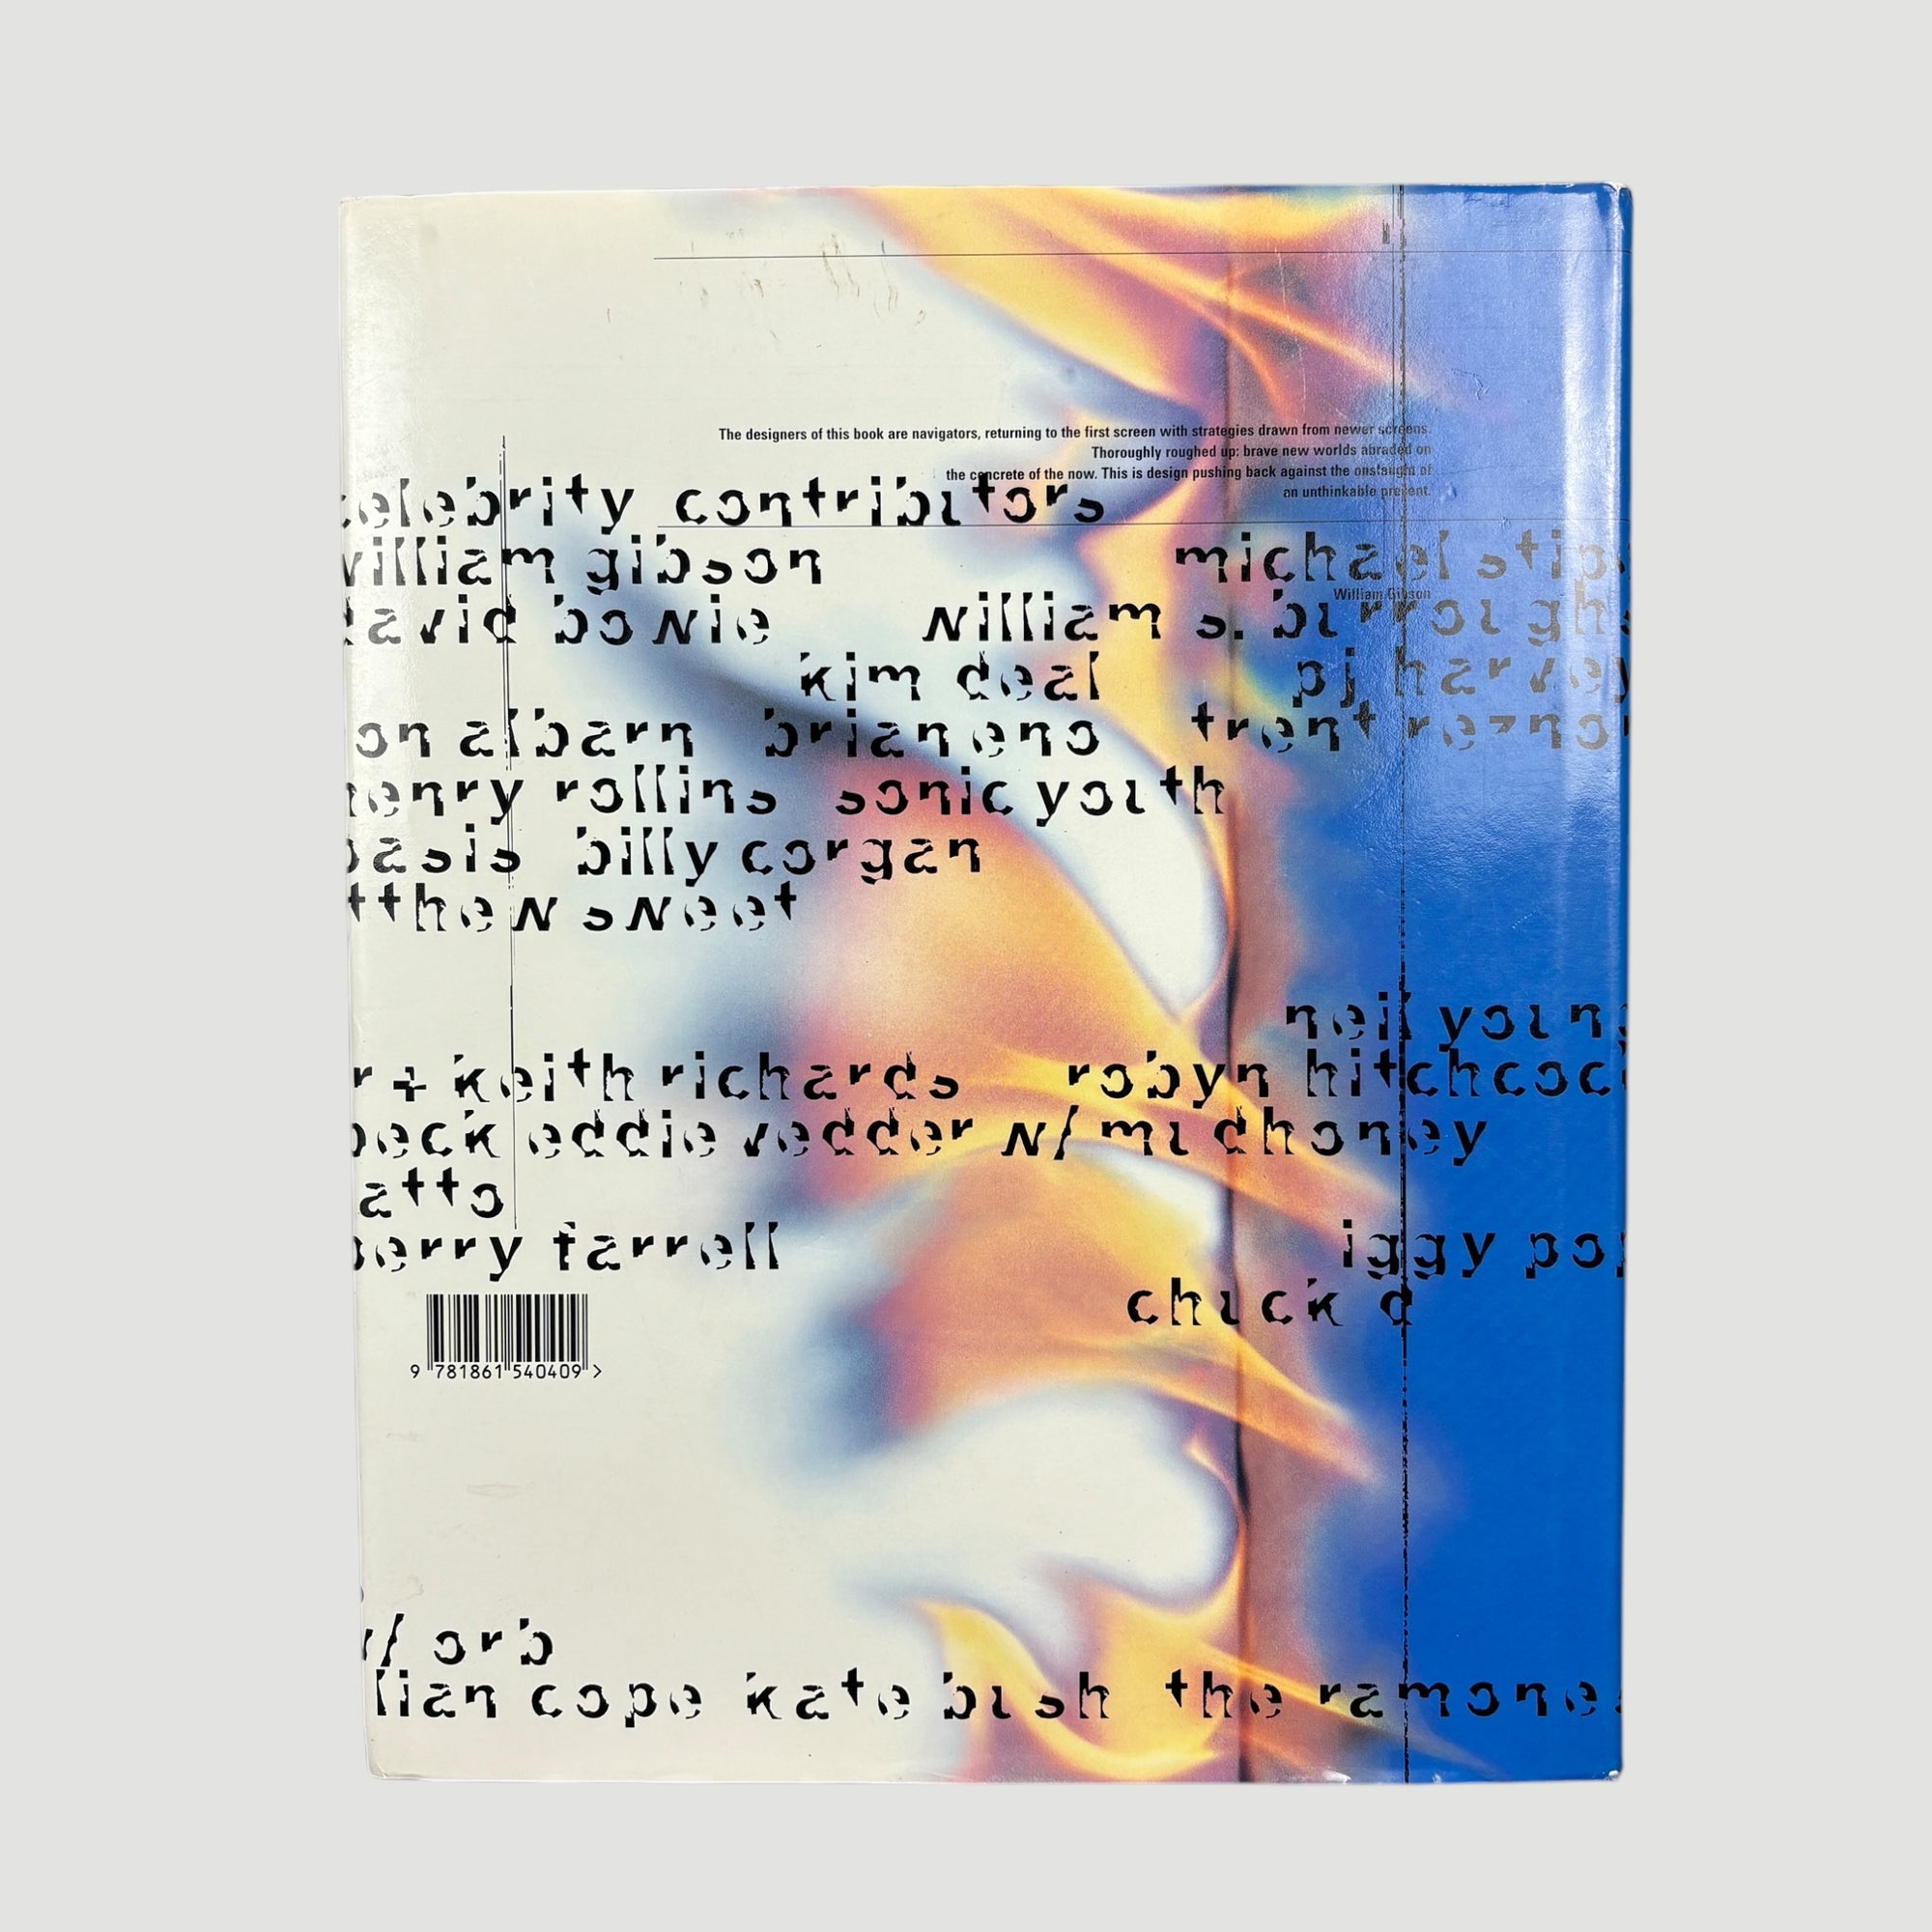 The designers of this book are navigators, returning to the first screen with strategies drawn from newer screens.
Thoroughly roughed up: brave new worlds abraded on
the concrete of the now. This is design pushing back against the onslaught of
an unthinkable present.
William Gibson
celebrity contributors
william gibson michael stipe
david bowie william s. burroughs
kim deal pj harvey
on albarn brian eno trent reznor
henry rollins sonic youth
oasis billy corgan
tthew sweet
neil young
r + keith richards robyn hitchcock
beck eddie vedder w/ mudhoney
atto
perry farrell iggy pop
chuck d
9 781861 540409 >
w/ orb
lian cope kate bush the ramones